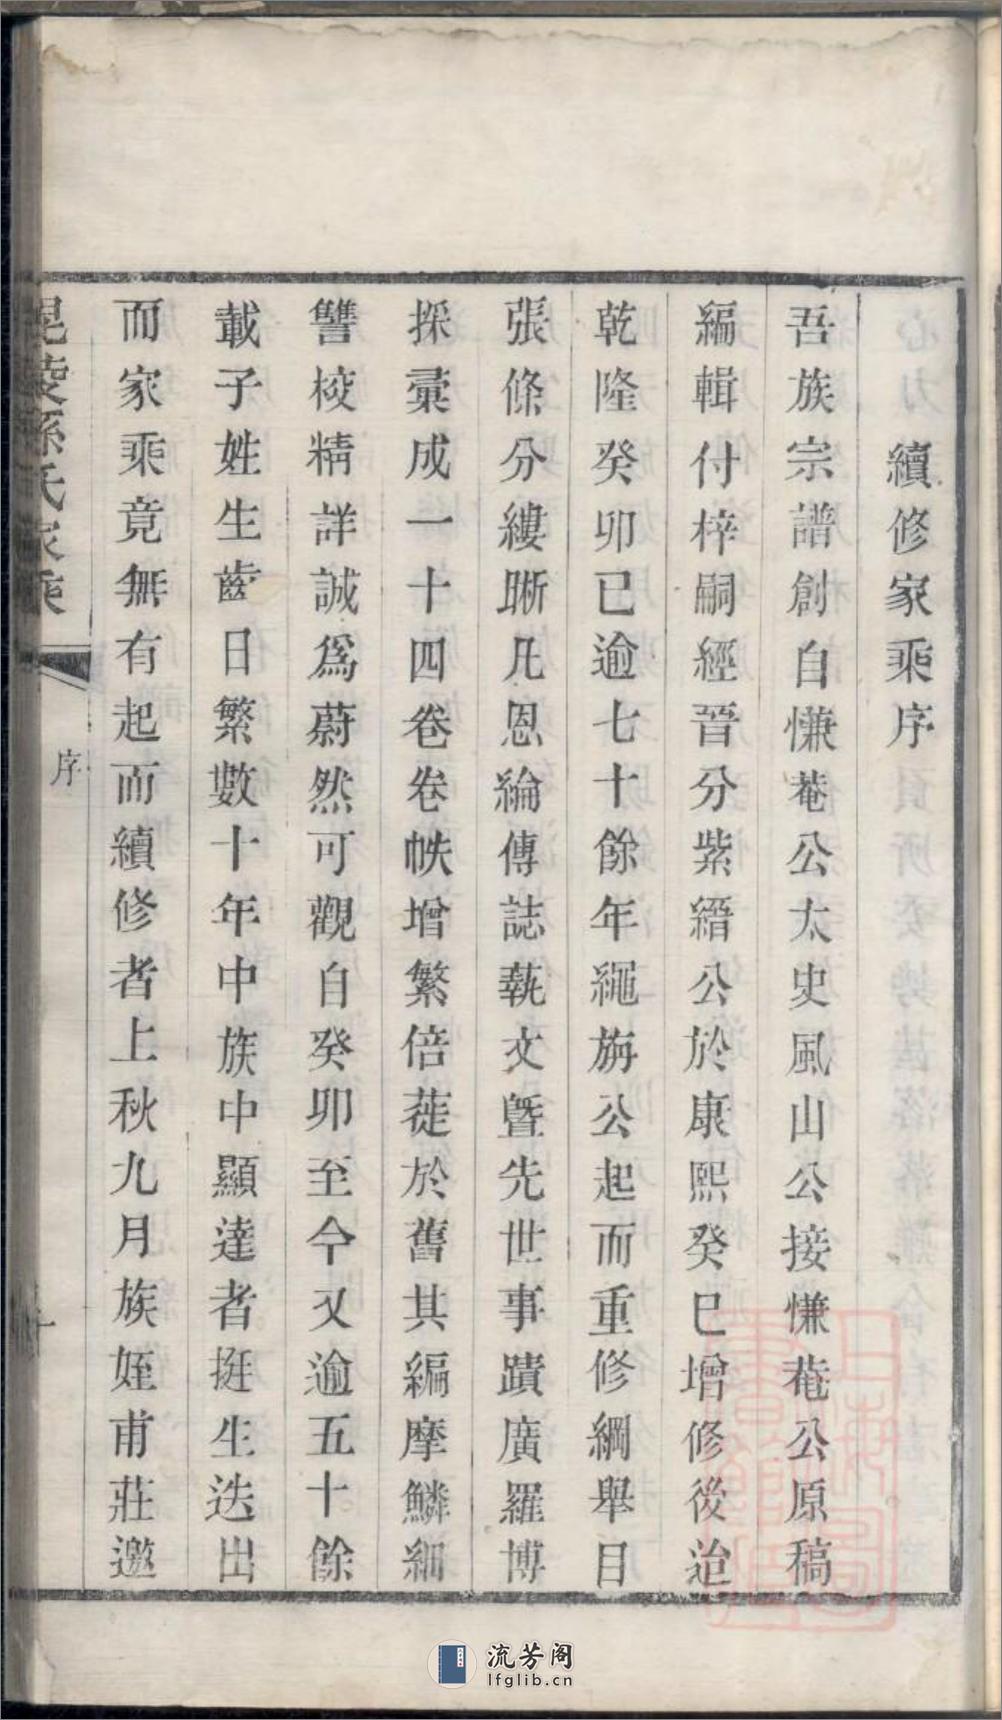 續修家乘序
吾族宗譜創自慊菴公太史風山公接慊菴公原稿
編輯付梓嗣經晉分紫縉公於康熙癸巳增修後迨
乾隆癸卯已逾七十餘年繩旃公起而重修綱舉目
張條分縷晰凡恩綸傳誌藝文曁先世事蹟廣羅博
採彙成一十四卷卷帙增繁倍蓰於舊其編摩鱗細
讐校精詳誠爲蔚然可觀自癸卯至今又逾五十餘
載子姓生齒日繁數十年中族中顯達者挺生迭出
而家乘竟無有起而續修者上秋九月族姪甫莊邀
毘陵孫氏家乘
序
流芳阁
lfglib.cn